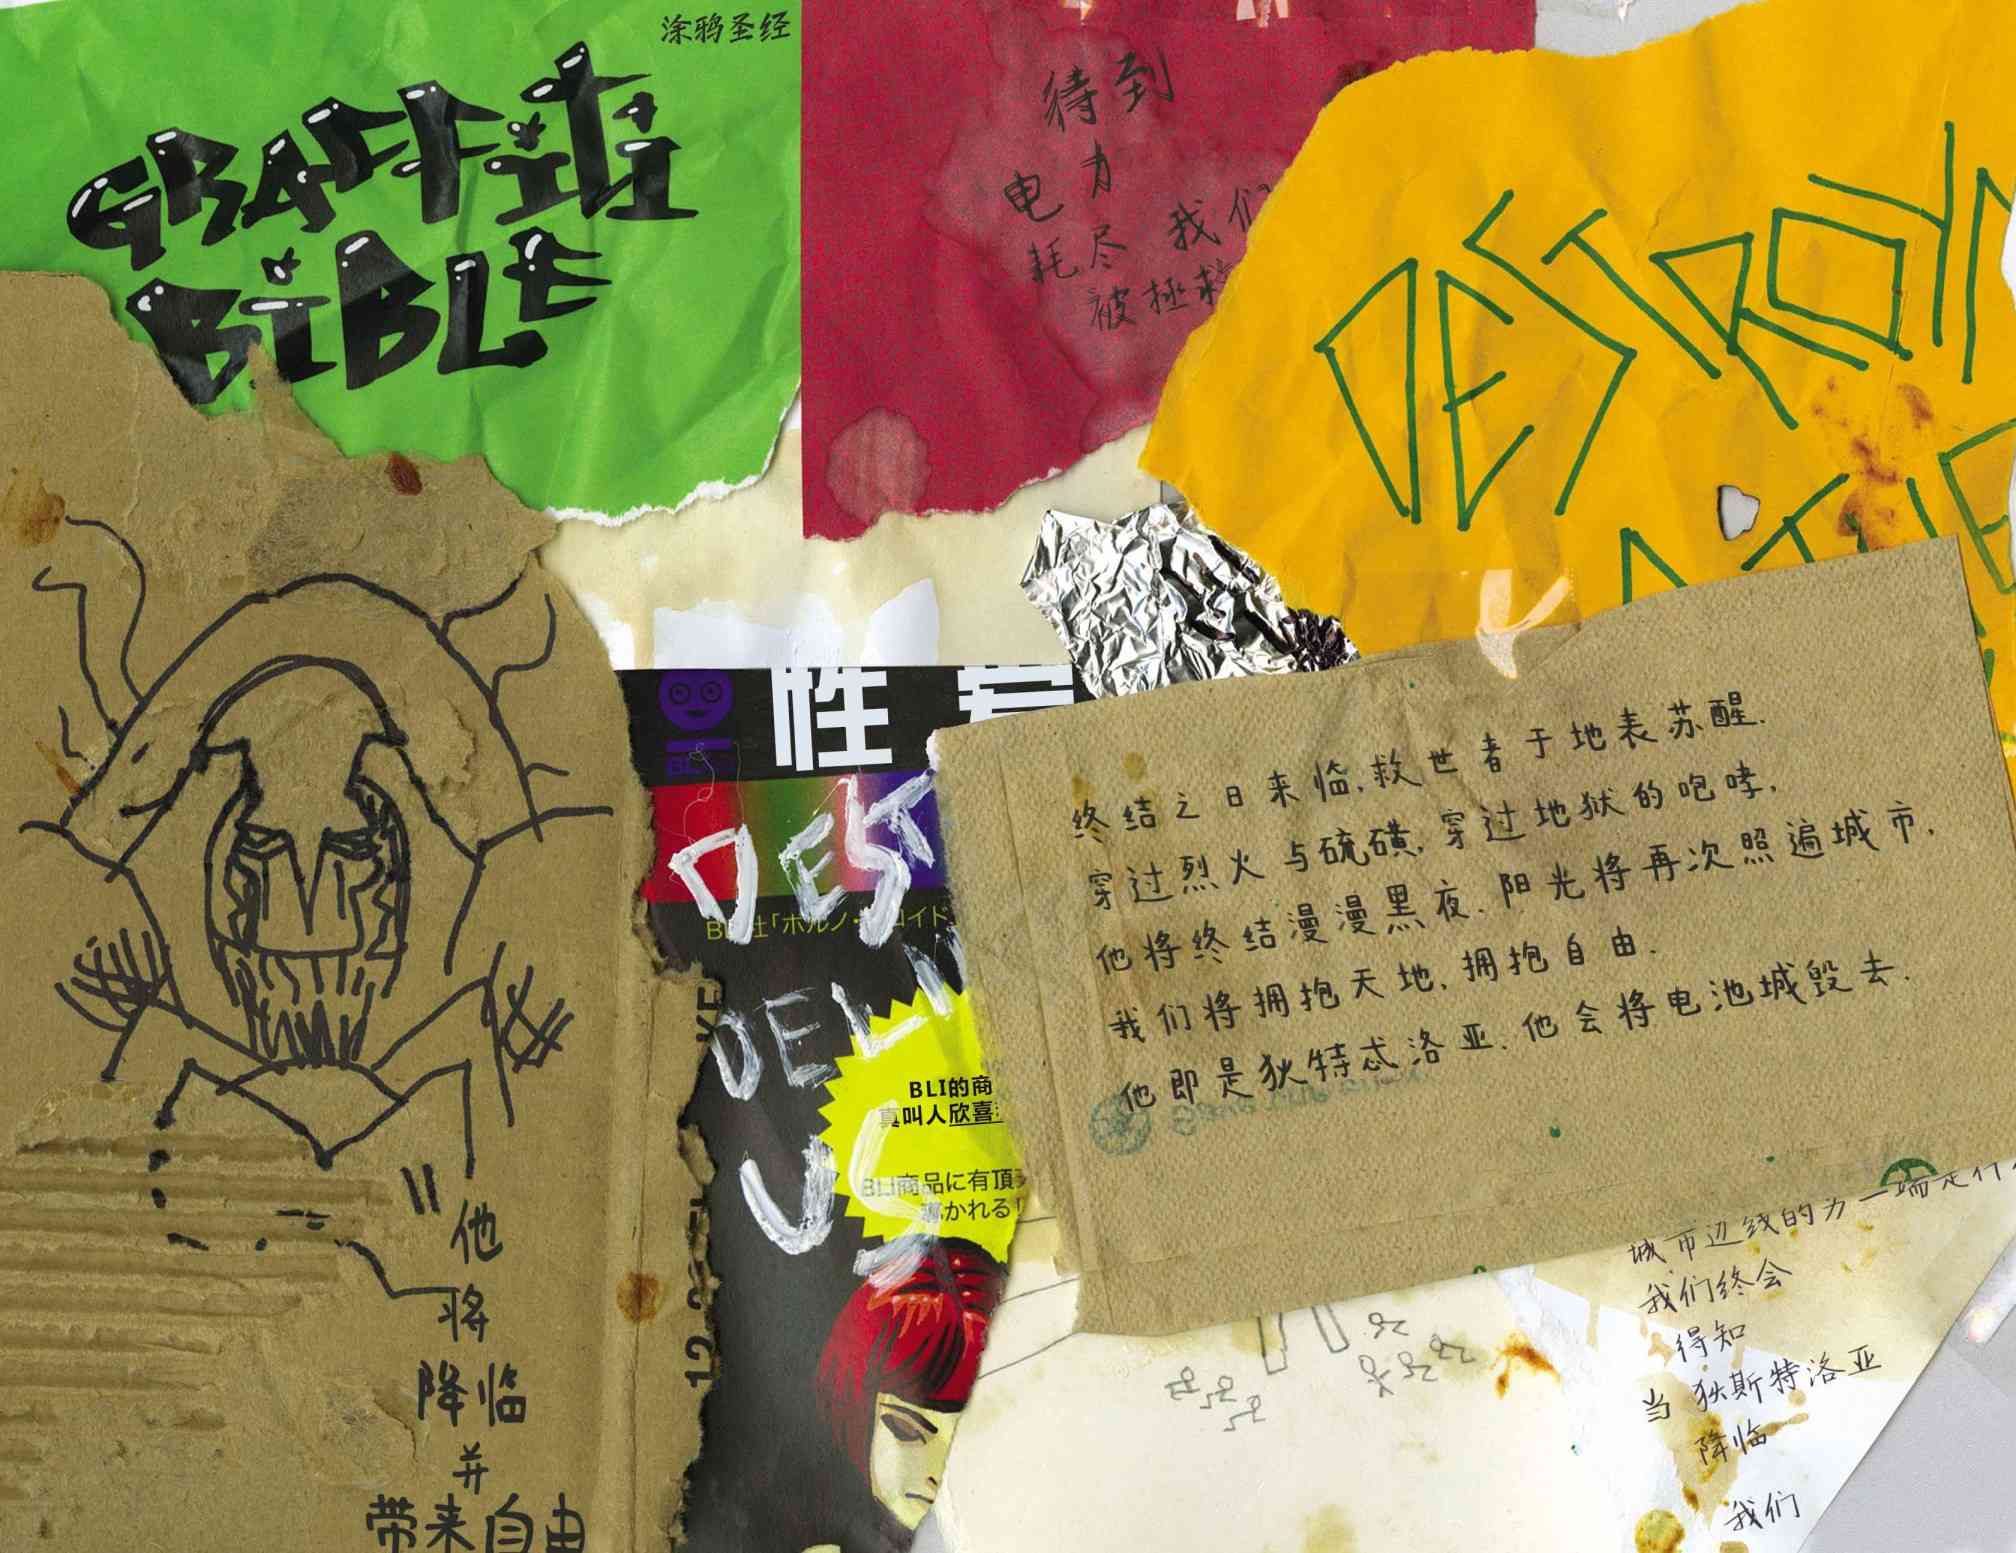 涂鸦圣经
GRAFFITI
BIBLE
待到
电力
耗尽 我们
被拯救
DESTROY
THE
性爱
BLI
DEST
BLI社「ポルノ・
ロイド
DELIV
US
BLI的商
真叫人欣喜
BLI商品に有頂天
導かれる!
终结之日来临,救世者于地表苏醒.
穿过烈火与硫磺,穿过地狱的咆哮,
他将终结漫漫黑夜.阳光将再次照遍城市.
我们将拥抱天地,拥抱自由.
他即是狄特忒洛亚.他会将电池城毁去.
"他
将
降临
并
带来自由
城市边线的另一端是什
我们终会
得知
当狄斯特洛亚
降临
我们